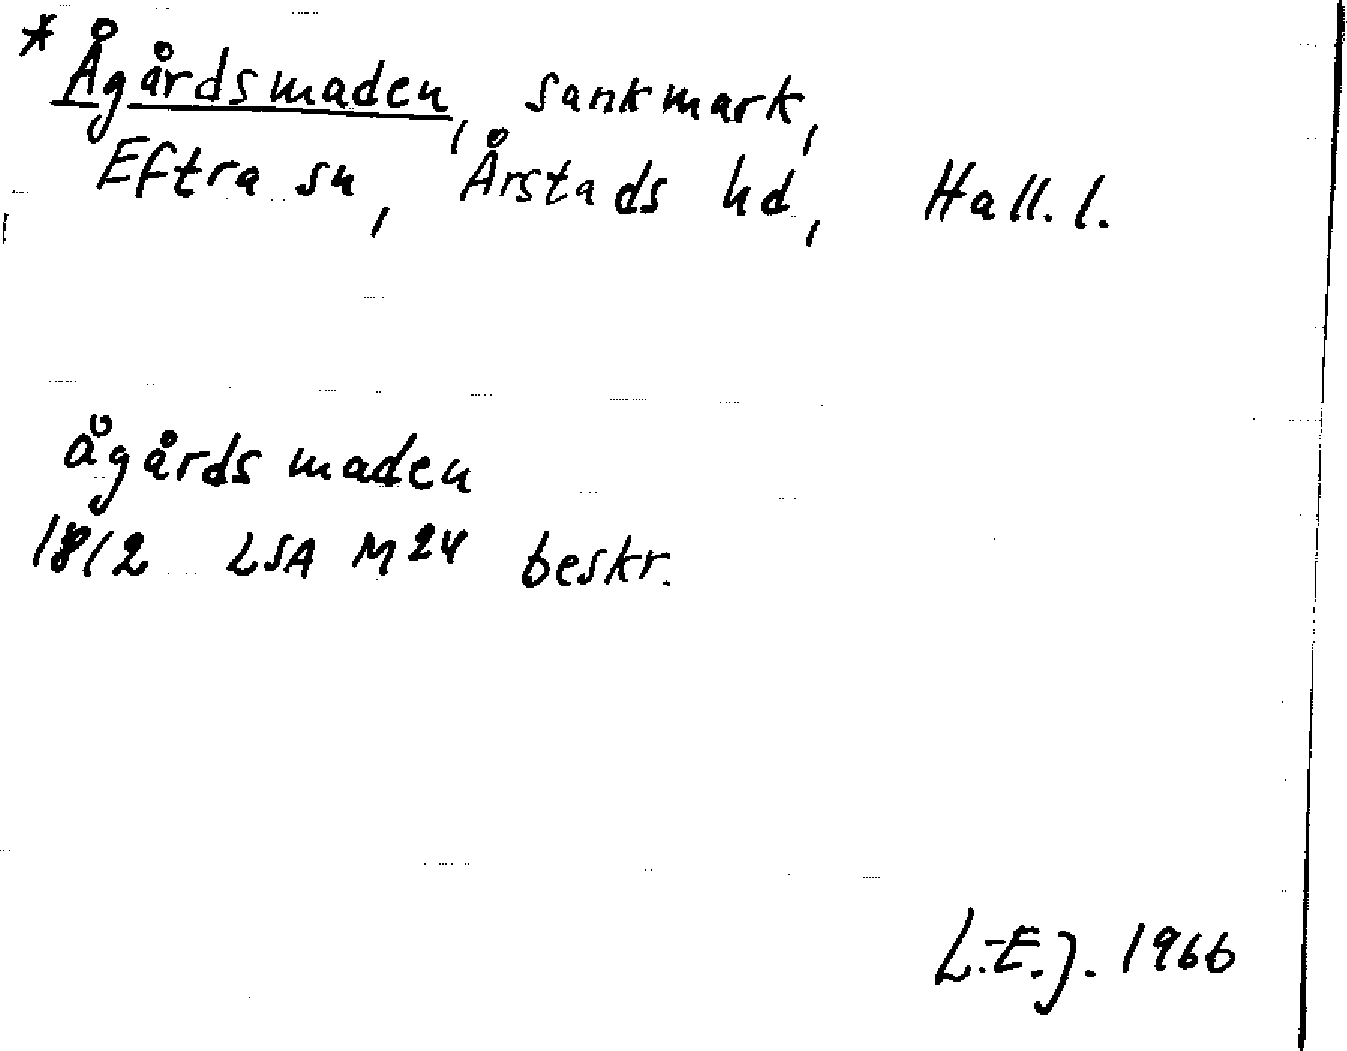 * Ågårdsmaden, sankmark,
Eftra sn, Årstads hd, Hall. l.
ågårds maden
1812 LSA M24 beskr.
L.-E.J. 1966